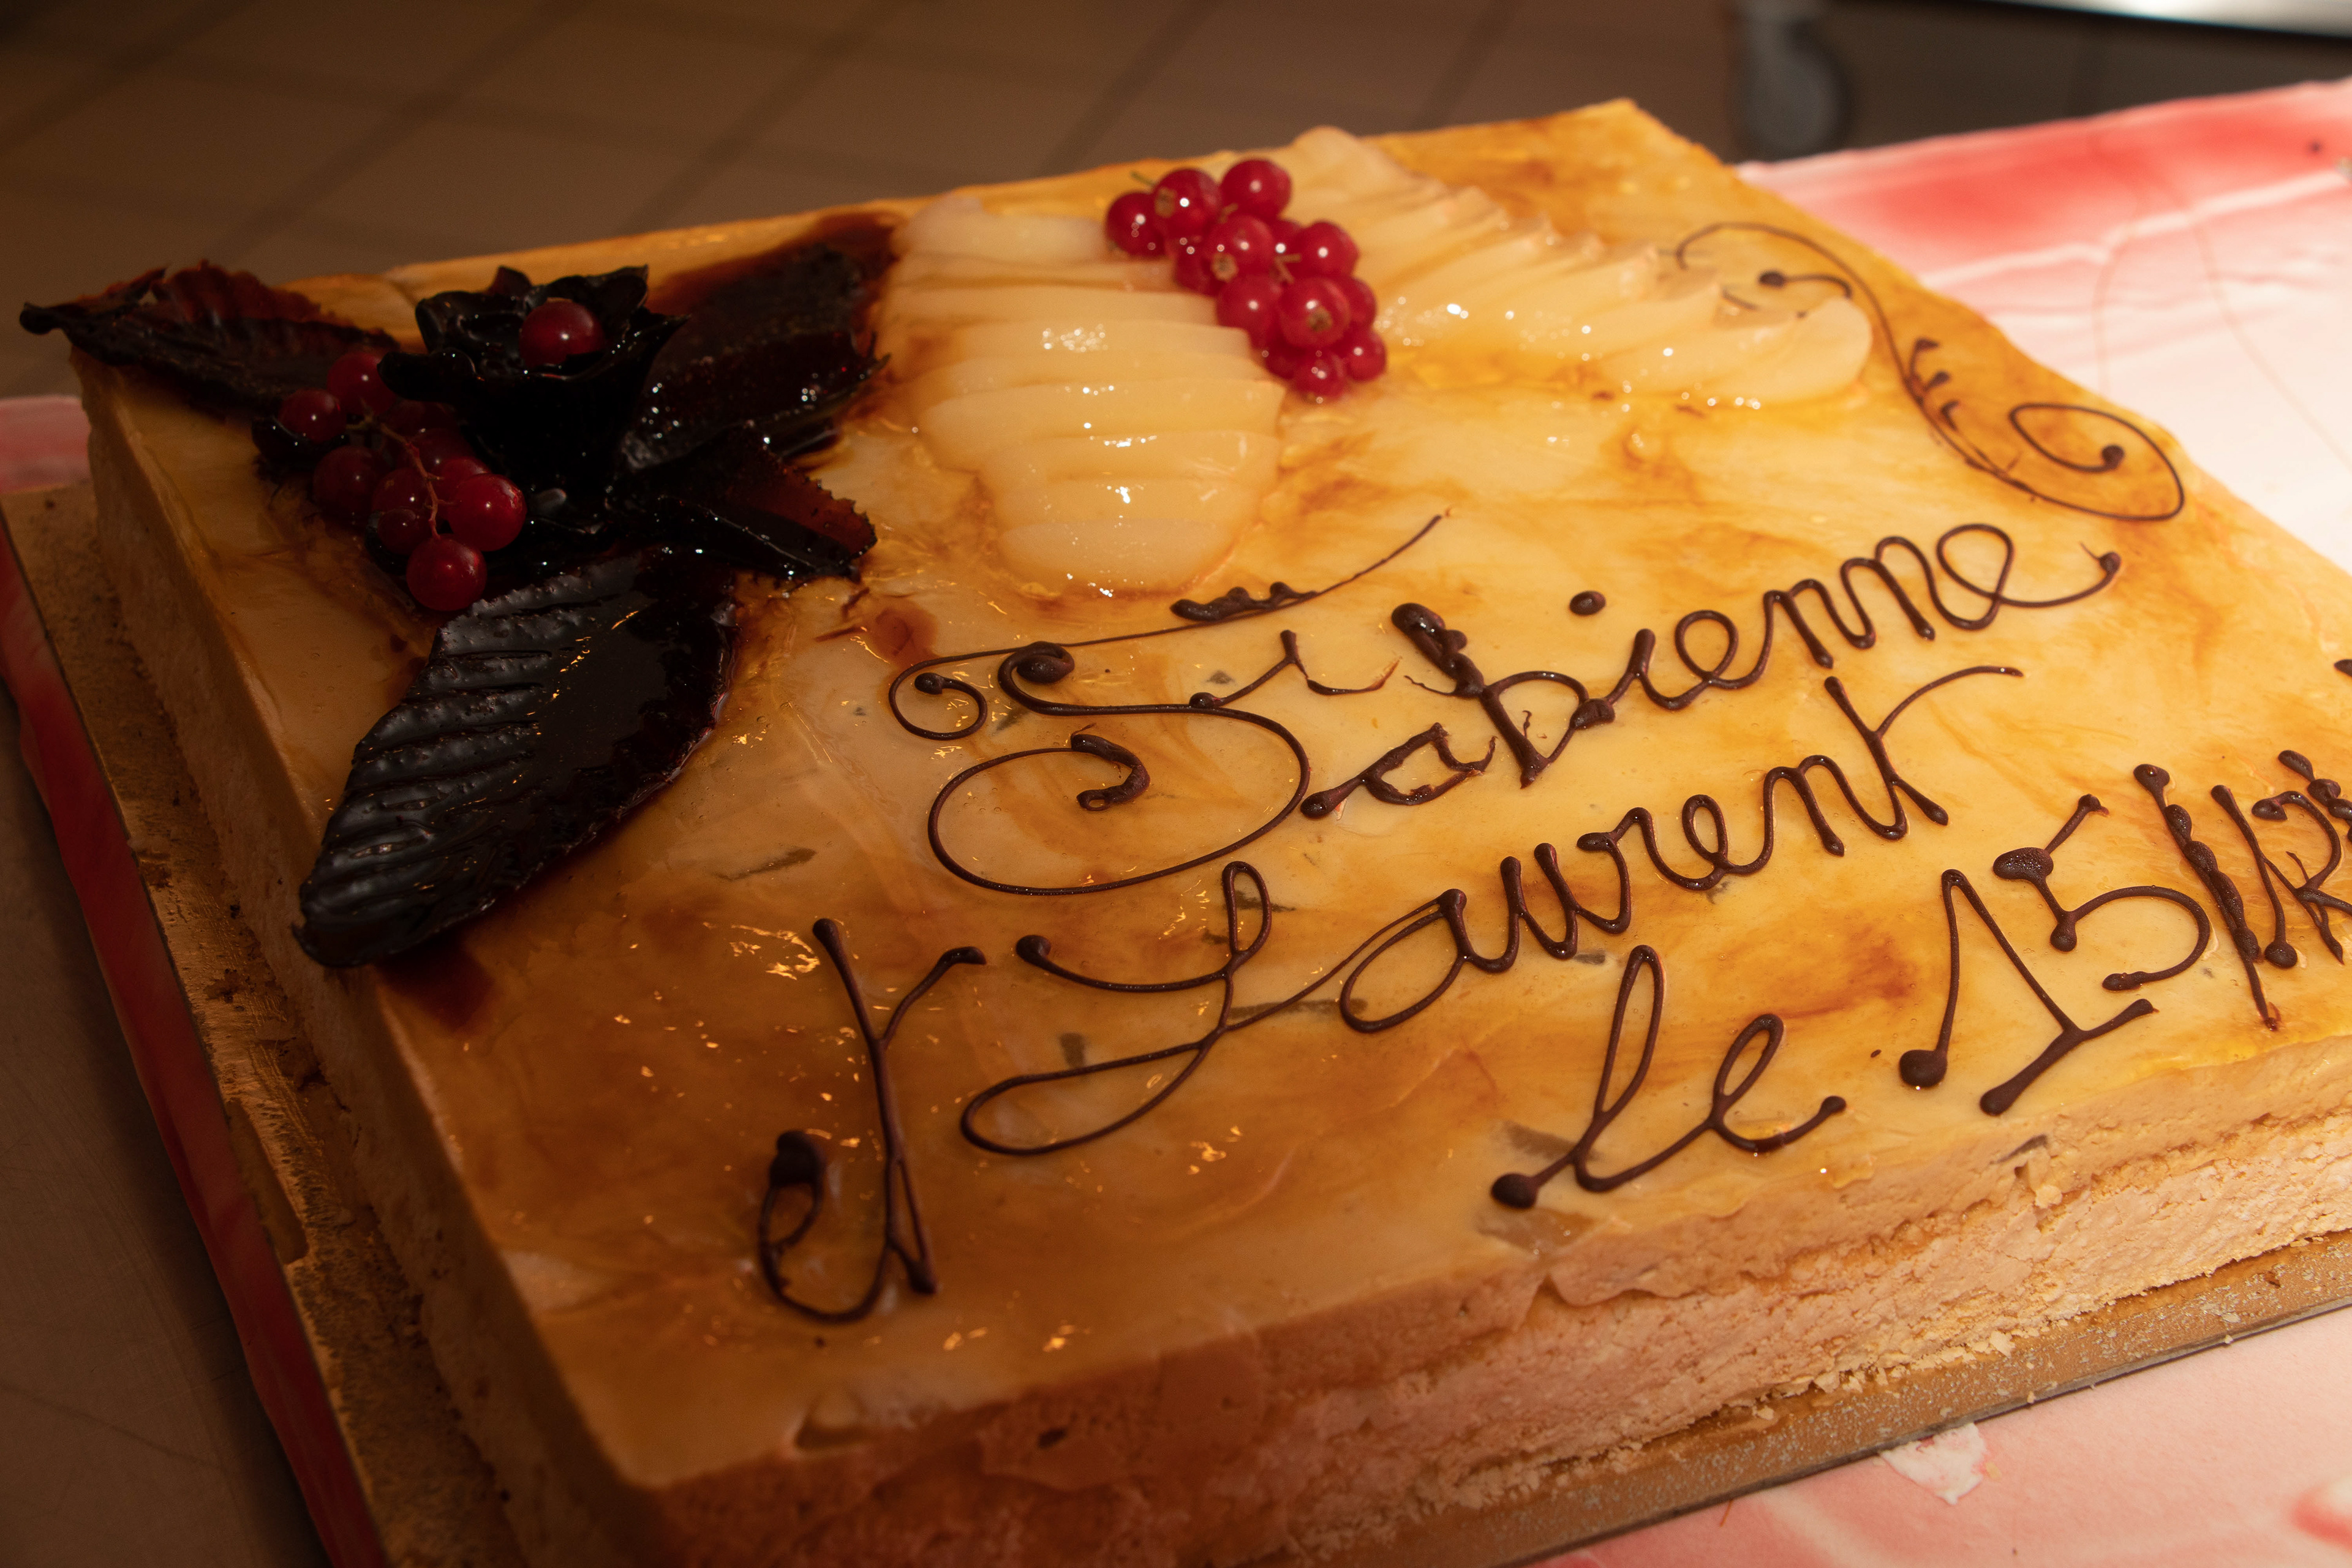 Fabienne
et Laurent
le 15/12